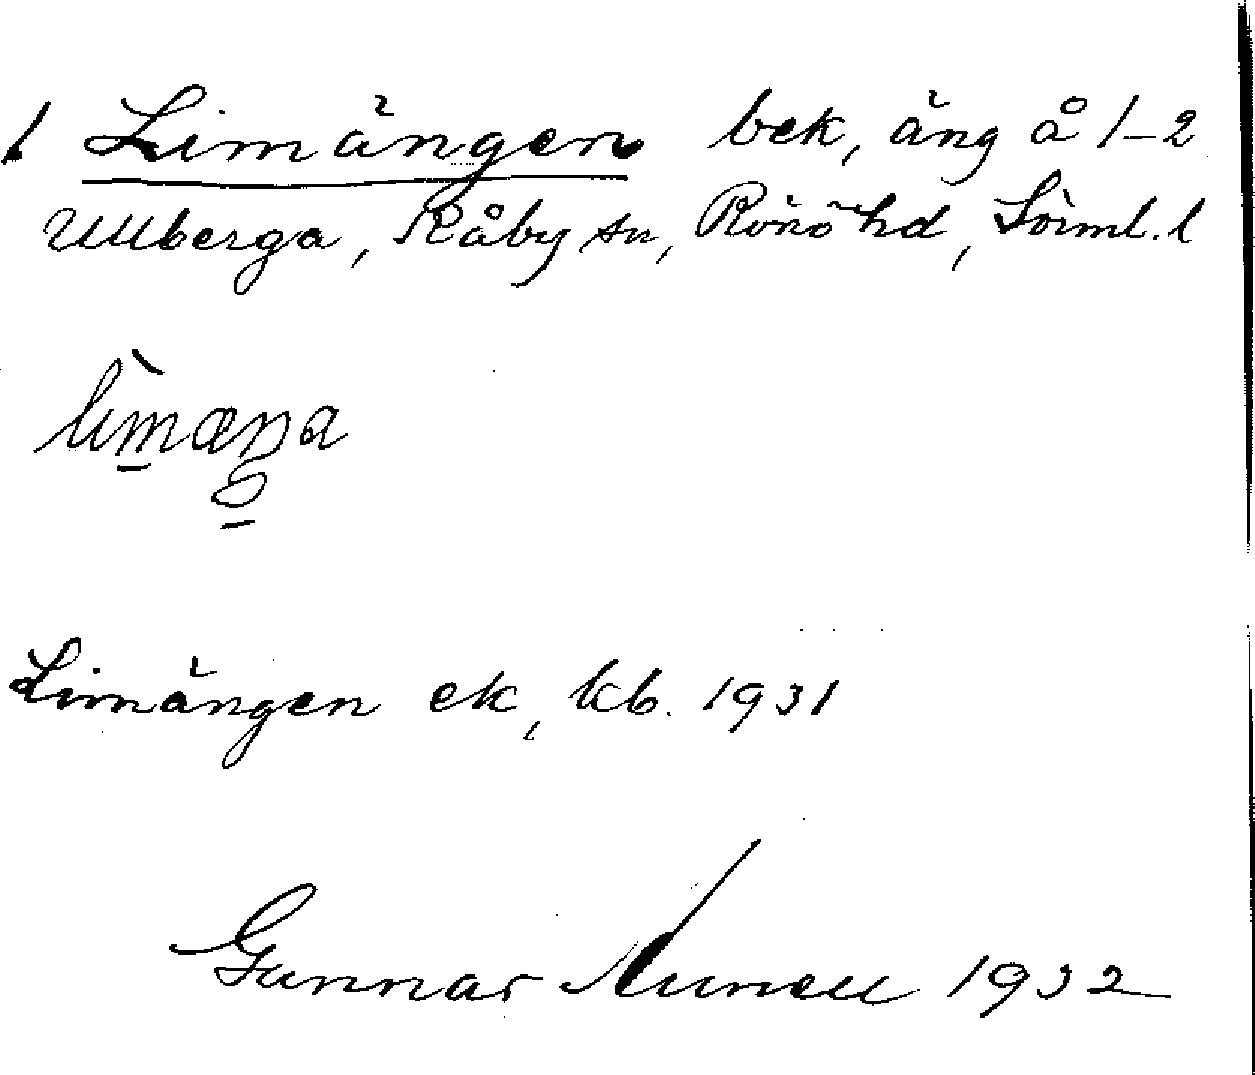 1 Limängen bek, äng å 1-2
Ullberga, Råby sn, Rönö hd, Sörml. l
Limängen ek, kb. 1931
Gunnar 1932